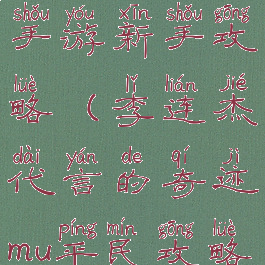 shǒu yóu xīn shǒu gōng
手游新手攻
lüè lǐ lián jié
略(李连杰
dài yán de qí jì
代言的奇迹
píng mín gōng lüè
mu平民攻略